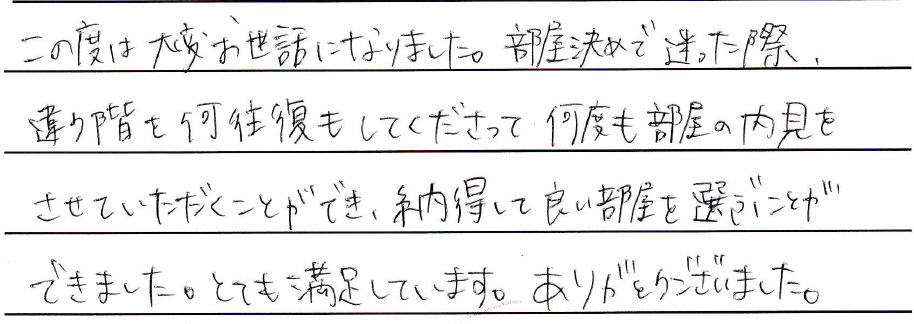 この度は大変お世話になりました。部屋決めで迷った際、
違う階を何往復もしてくださって何度も部屋の内見を
させていただくことができ、納得して良い部屋を選ぶことが
できました。とても満足しています。ありがとうございました。